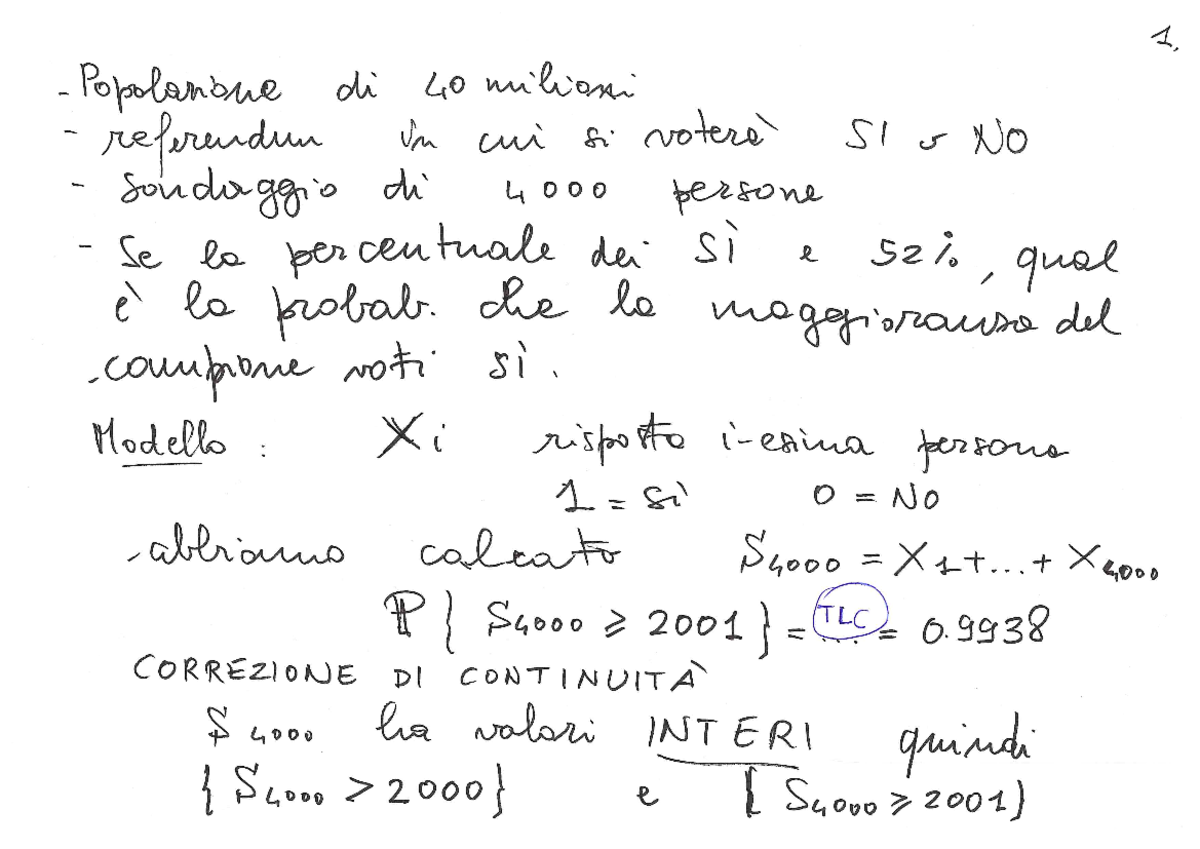 1.
- Popolazione di 40 milioni
- referendum in cui si voterà SI o NO
- Sondaggio di 4000 persone
- Se la percentuale dei SÌ è 52%, qual
è la probab. che la maggioranza del
campione voti sì.
Modello: Xi risposta i-esima persona
1 = sì 0 = NO
abbiamo calcato S4000 = X1+...+ X4000
P{ S4000 ≥ 2001 } = TLC = 0.9938
CORREZIONE DI CONTINUITÀ
S4000 ha valori INTERI quindi
{ S4000 > 2000} e { S4000 ≥ 2001}